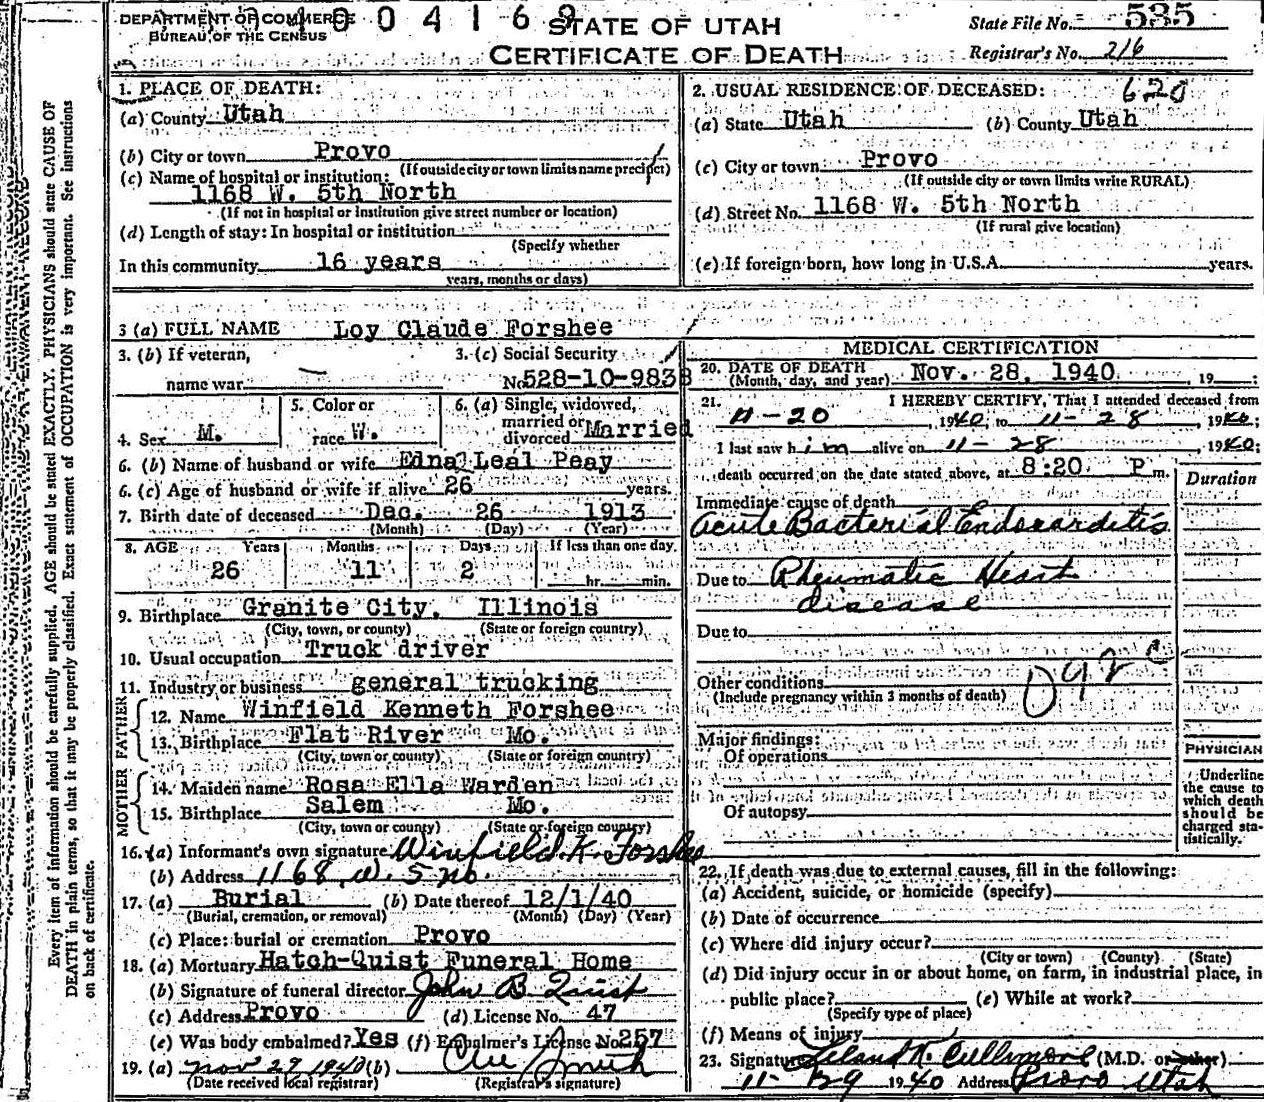 DEPARTMENT OF COMMERCE
BUREAU OF THE CENSUS
04169
STATE OF UTAH
CERTIFICATE OF DEATH
State File No. 535
Registrar's No. 216
Every item of information should be carefully supplied. AGE should be stated EXACTLY. PHYSICIANS should state CAUSE OF
DEATH in plain terms, so that it may be properly classified. Exact statement of OCCUPATION is very important. See instructions
on back of certificate.
1. PLACE OF DEATH:
(a) County Utah
(b) City or town Provo
(If outside city or town limits name precinct)
(c) Name of hospital or institution:
1168 W. 5th North
(If not in hospital or institution give street number or location)
(d) Length of stay: In hospital or institution
(Specify whether
In this community 16 years
years, months or days)
2. USUAL RESIDENCE OF DECEASED: 620
(a) State Utah (b) County Utah
(c) City or town Provo
(If outside city or town limits write RURAL)
(d) Street No. 1168 W. 5th North
(If rural give location)
(e) If foreign born, how long in U.S.A. years.
3 (a) FULL NAME Loy Claude Forshee
3. (b) If veteran, 3. (c) Social Security
name war No. 528-10-9838
4. Sex M.
5. Color or
race W.
6. (a) Single, widowed,
married or
divorced Married
6. (b) Name of husband or wife Edna Leal Peay
6. (c) Age of husband or wife if alive 26 years.
7. Birth date of deceased Dec. 26 1913
(Month) (Day) (Year)
8. AGE Years Months Days If less than one day
26 11 2 hr. min.
9. Birthplace Granite City, Illinois
(City, town, or county) (State or foreign country)
10. Usual occupation Truck driver
11. Industry or business general trucking
FATHER
12. Name Winfield Kenneth Forshee
13. Birthplace Flat River Mo.
(City, town, or county) (State or foreign country)
MOTHER
14. Maiden name Rosa Ella Warden
15. Birthplace Salem Mo.
(City, town or county) (State or foreign country)
16. (a) Informant's own signature Winfield K. Forshee
(b) Address 1168 W. 5 no.
17. (a) Burial (b) Date thereof 12/1/40
(Burial, cremation, or removal) (Month) (Day) (Year)
(c) Place: burial or cremation Provo
18. (a) Mortuary Hatch-Quist Funeral Home
(b) Signature of funeral director John B Quist
(c) Address Provo (d) License No. 47
(e) Was body embalmed? Yes (f) Embalmer's License No. 257
19. (a) Nov 29, 1940 (b) Smith
(Date received local registrar) (Registrar's signature)
MEDICAL CERTIFICATION
20. DATE OF DEATH
(Month, day, and year) Nov. 28, 1940, 19
21. I HEREBY CERTIFY, That I attended deceased from
11-20, 1940, to 11-28, 1940;
I last saw him alive on 11-28, 1940;
death occurred on the date stated above, at 8:20 P m.
Duration
Immediate cause of death
Acute Bacterial Endocarditis
Due to Rheumatic Heart
disease
Due to
Other conditions
(Include pregnancy within 3 months of death)
Major findings:
Of operations
Of autopsy
PHYSICIAN
Underline
the cause to
which death
should be
charged sta-
tistically.
22. If death was due to external causes, fill in the following:
(a) Accident, suicide, or homicide (specify)
(b) Date of occurrence
(c) Where did injury occur?
(City or town) (County) (State)
(d) Did injury occur in or about home, on farm, in industrial place, in
public place? (e) While at work?
(Specify type of place)
(f) Means of injury
23. Signature Leland K. Cullimore (M.D. or other)
11-29 1940 Address Provo Utah